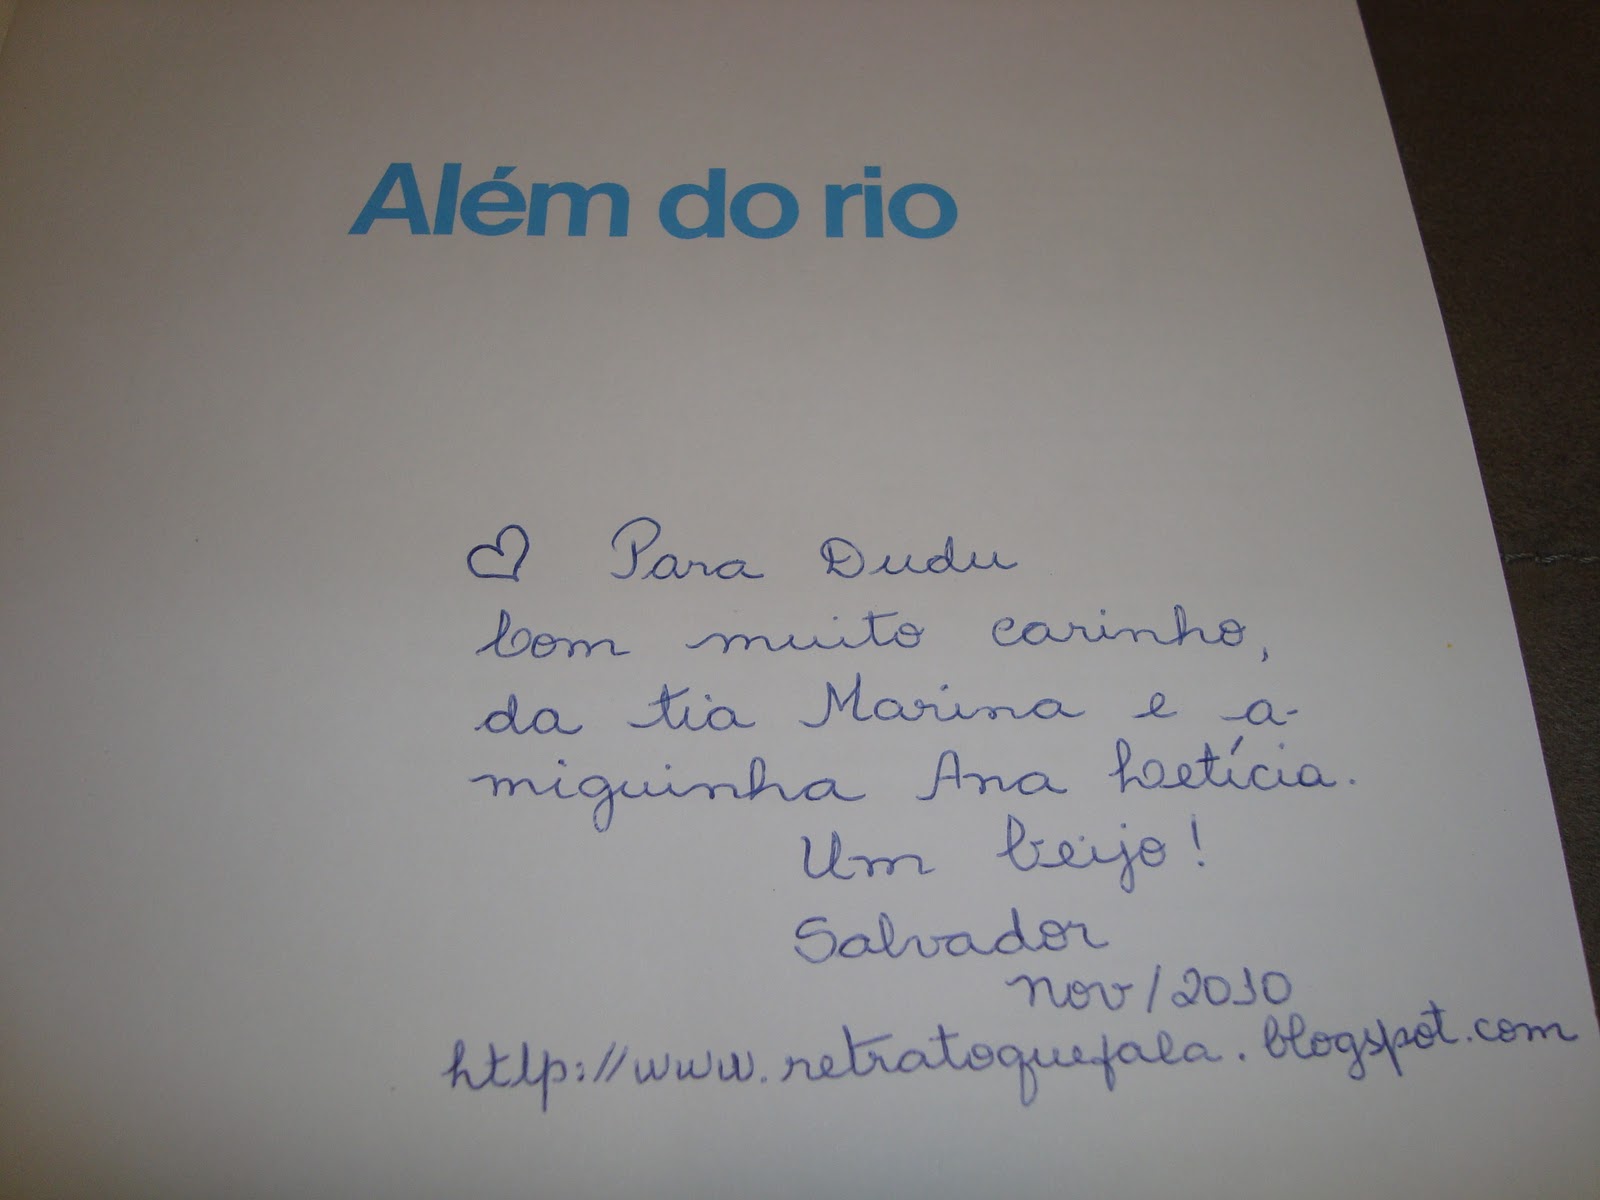 Além do rio
♡ Para Dudu
Com muito carinho,
da tia Marina e a-
miguinha Ana Letícia.
Um beijo!
Salvador
nov/2010
http://www.retratoquefala.blogspot.com